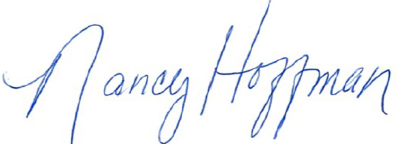 Nancy Hoffman